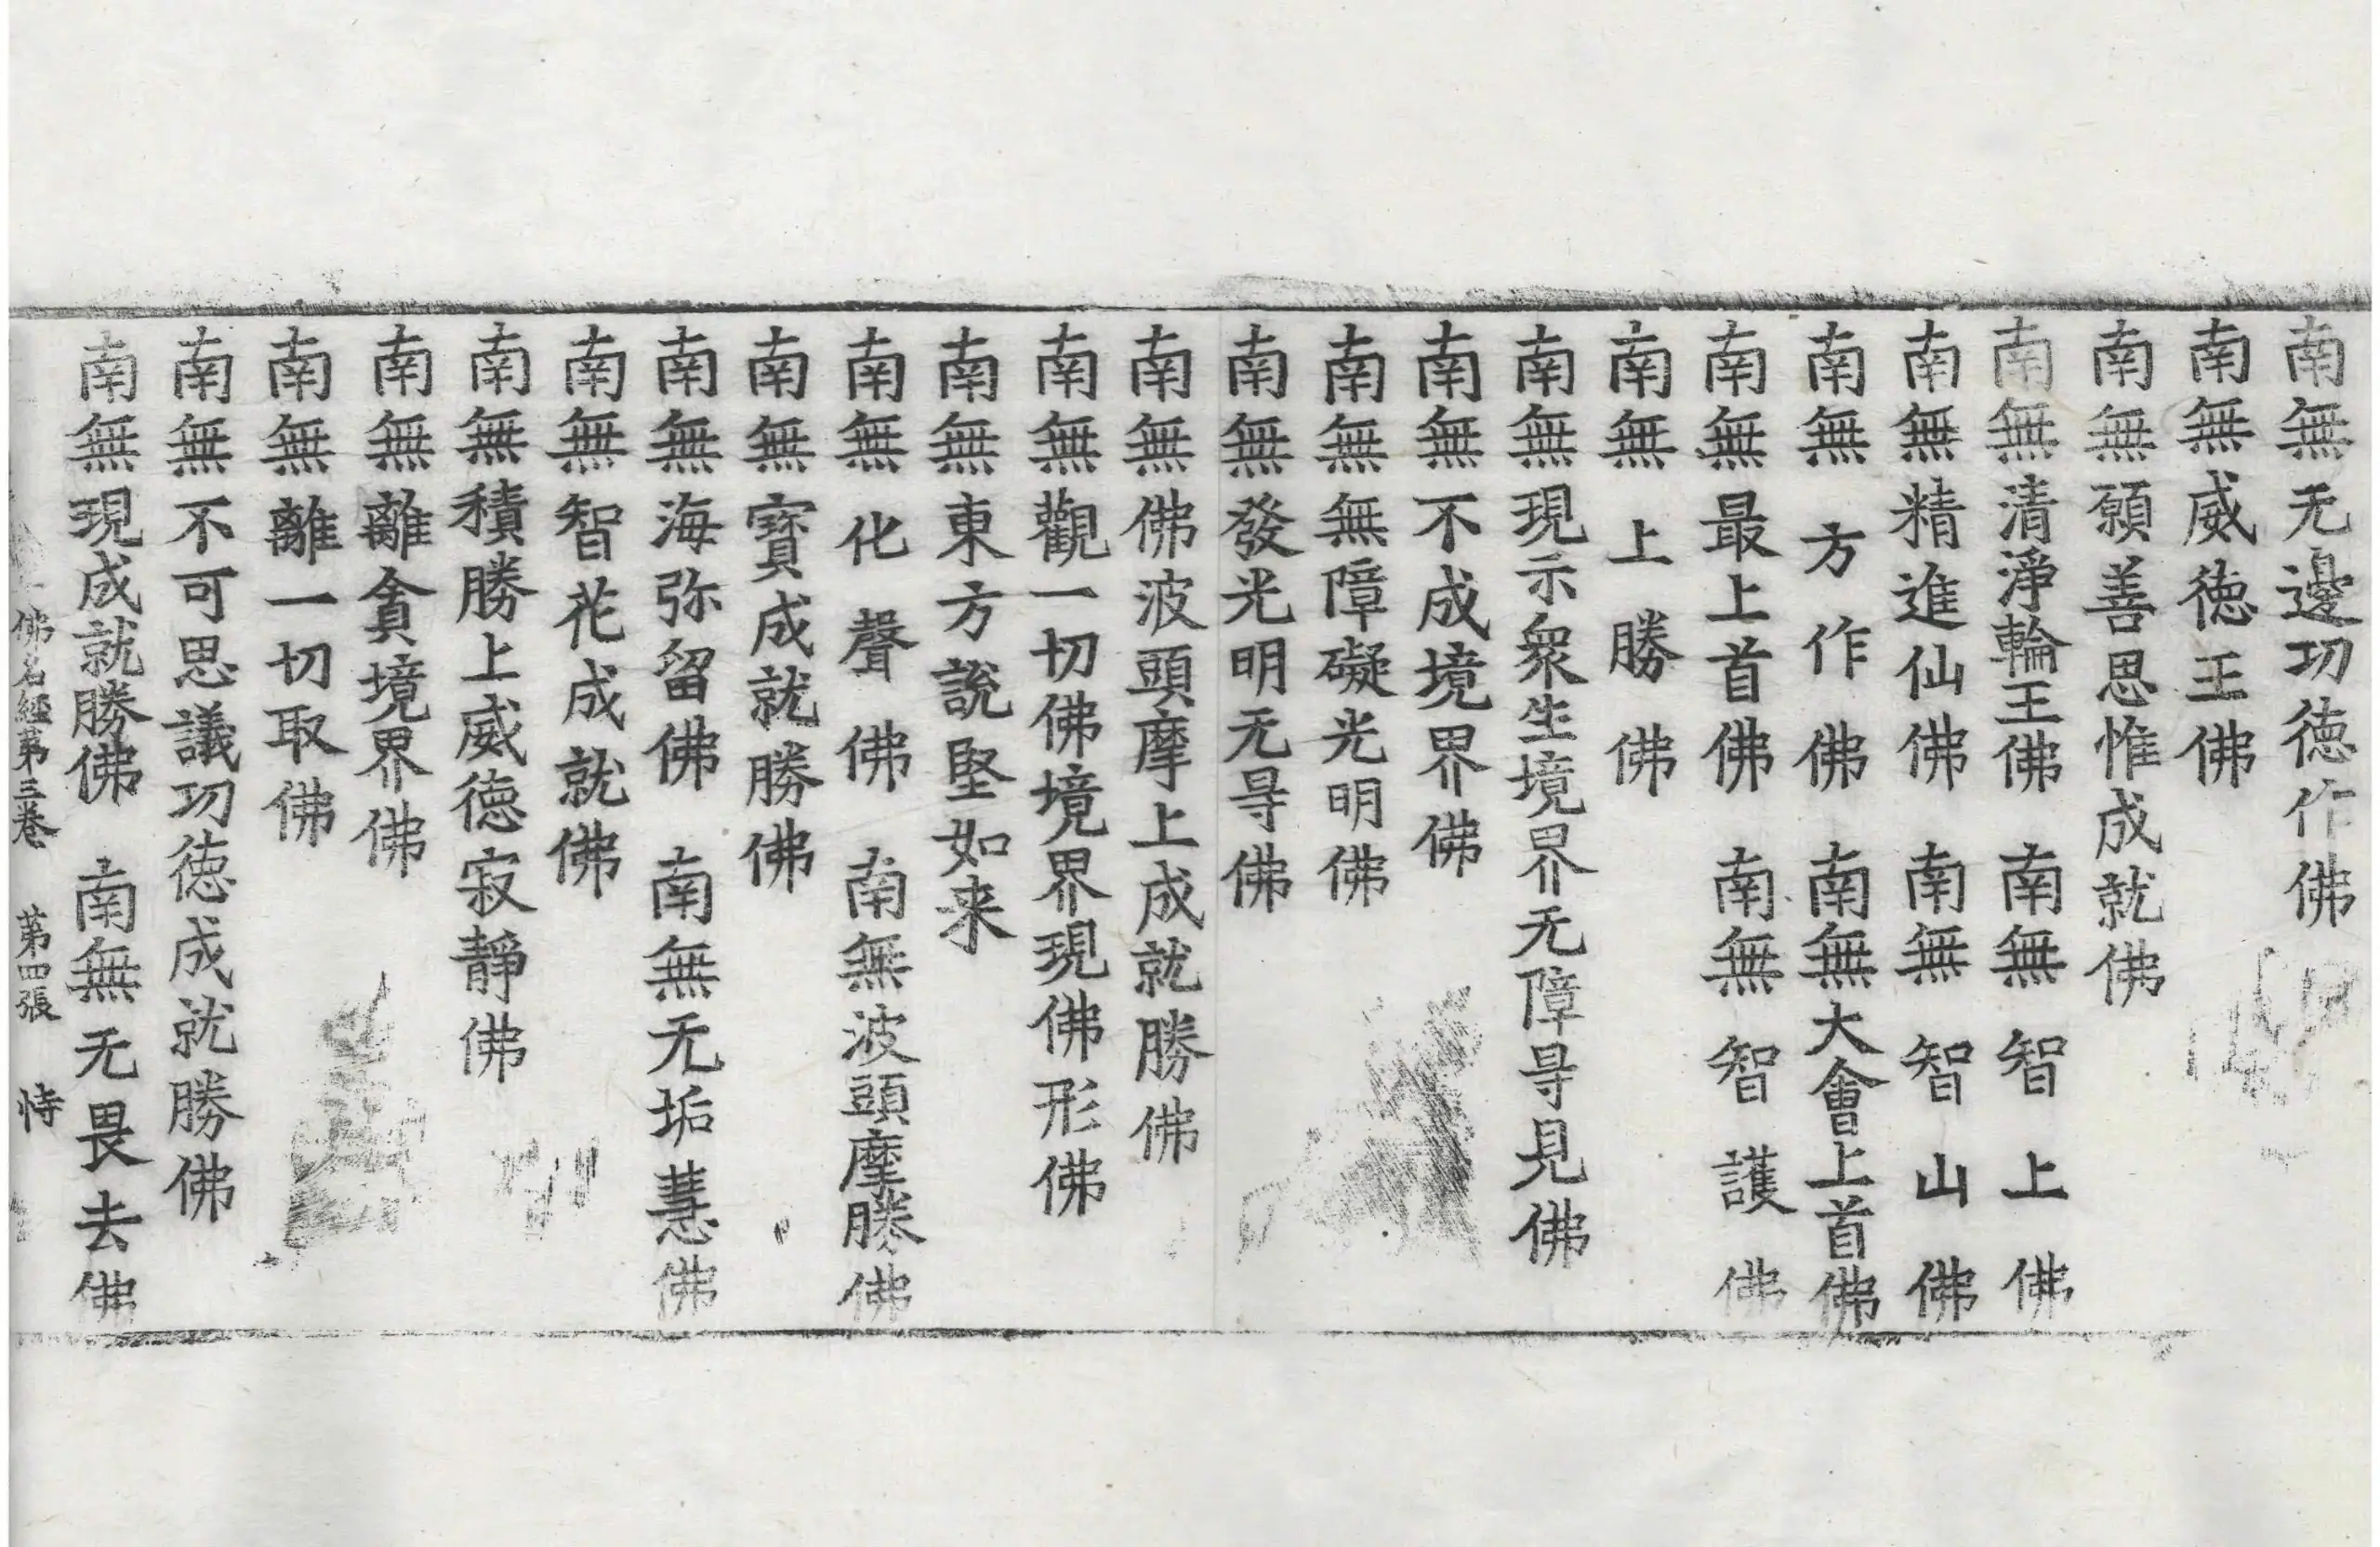 南無无邊功徳作佛
南無威徳王佛
南無願善思惟成就佛
南無清淨輪王佛 南無智上佛
南無精進仙佛 南無智山佛
南無方作佛 南無大會上首佛
南無最上首佛 南無智護佛
南無上勝佛
南無現示衆生境界无障㝵見佛
南無不成境界佛
南無無障礙光明佛
南無發光明无㝵佛
南無佛波頭摩上成就勝佛
南無觀一切佛境界現佛形佛
南無東方說堅如来
南無化聲佛 南無波頭摩勝佛
南無寶成就勝佛
南無海弥留佛 南無无垢慧佛
南無智花成就佛
南無積勝上威徳寂靜佛
南無離貪境界佛
南無離一切取佛
南無不可思議功徳成就勝佛
南無現成就勝佛 南無无畏去佛
佛名經第三卷 第四張 恃